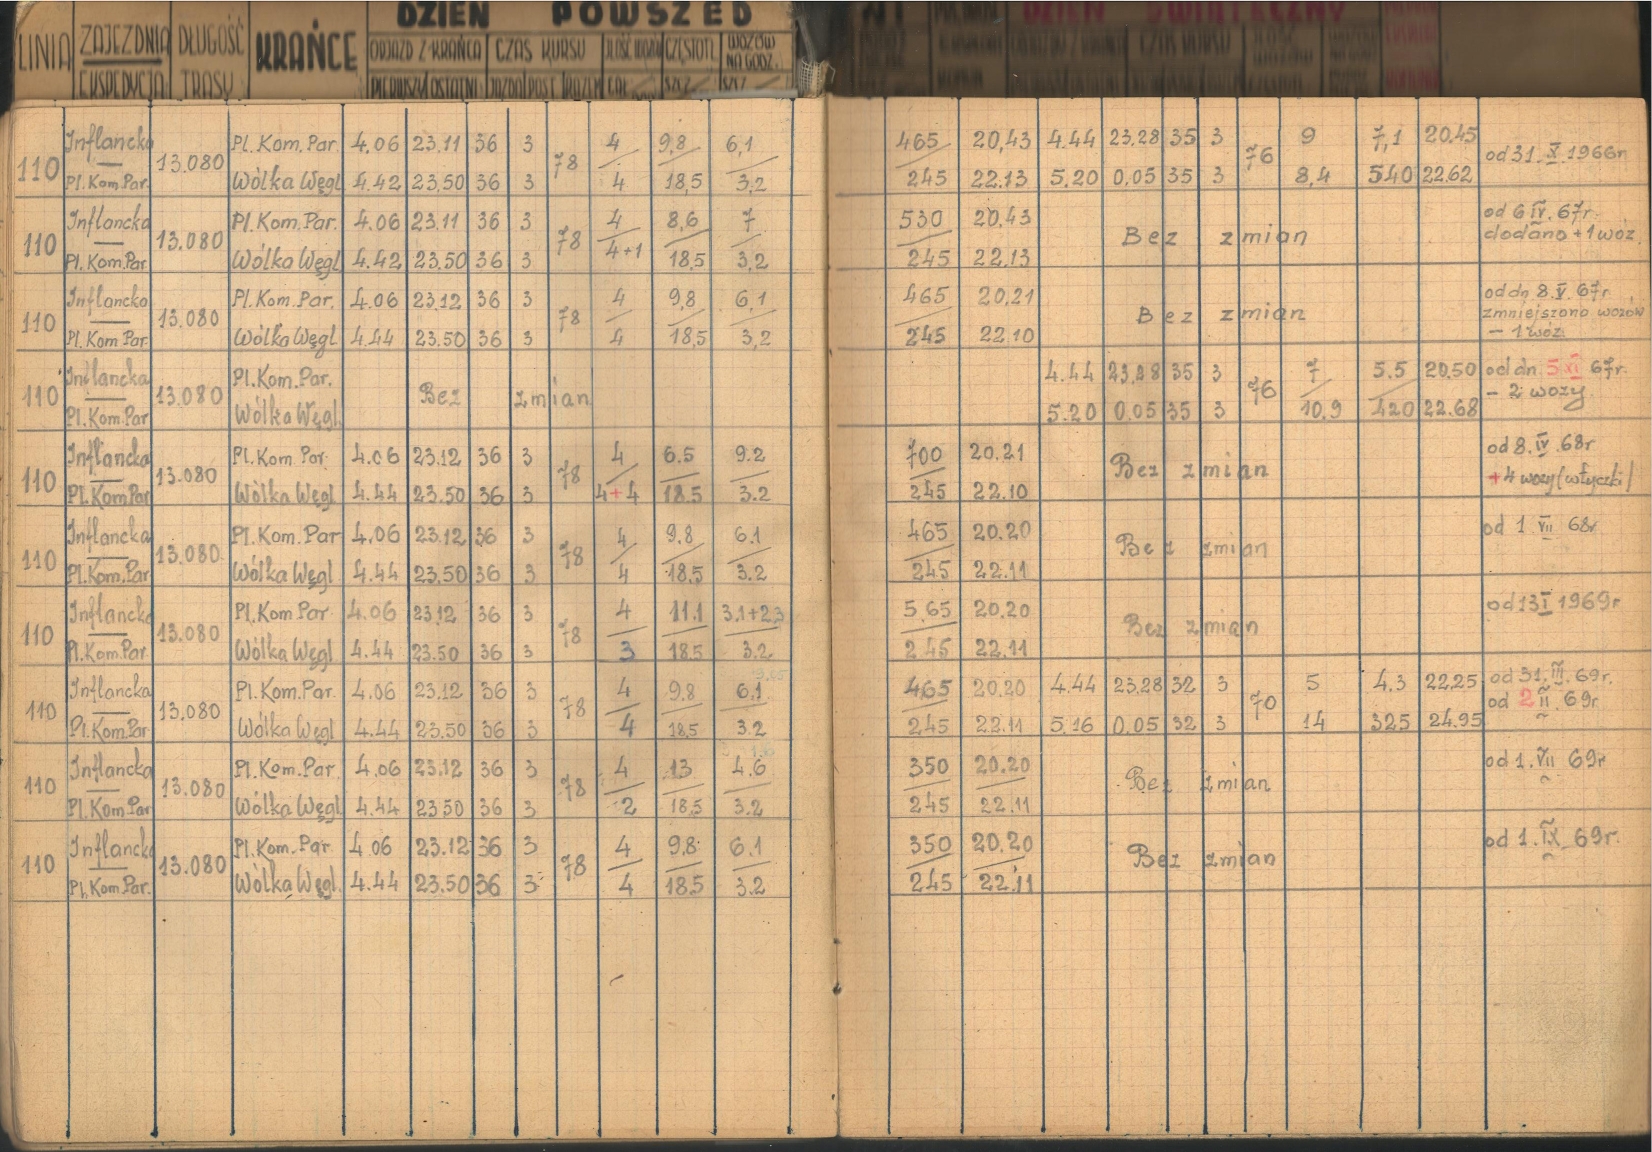 DZIEŃ POWSZED
LINIA ZAJEZDNIA DŁUGOŚĆ KRAŃCE ODJAZD Z KRAŃCA CZAS KURSU CZĘSTOTL. WOZÓW
EKSPEDYCJA TRASY NA GODZ.
PIERWSZY OSTATNI JAZDA POST. RAZEM
DZIEŃ ŚWIĄTECZNY
Inflancka Pl. Kom. Par. 4.06 23.11 36 3 4 9,8 6,1 465 20,43 4.44 23.28 35 3 9 7,1 20.45
110 13.080 78 76 od 31.X.1966r
Pl. Kom. Par. Wólka Węgl 4.42 23.50 36 3 4 18,5 3,2 245 22.13 5.20 0.05 35 3 8,4 540 22.62
Inflancka Pl. Kom. Par. 4.06 23.11 36 3 4 8,6 7 530 20,43 od 6 IV. 67r.
110 13.080 78 Bez zmian dodano +1 wóz
Pl. Kom. Par Wólka Węgl 4.42 23.50 36 3 4+1 18.5 3,2 245 22.13
Inflancka Pl. Kom. Par. 4.06 23.12 36 3 4 9,8 6,1 465 20,21 od dn 8.V. 67r.
110 13.080 78 Bez zmian zmniejszono wozów
Pl. Kom Par. Wólka Węgl 4.44 23.50 36 3 4 18,5 3,2 245 22.10 - 1 wóz.
Inflancka Pl. Kom. Par. 4.44 23.28 35 3 7 5.5 20.50 od dn. 5 XI 67r.
110 13.080 Bez zmian 76 - 2 wozy
Pl. Kom. Par Wólka Węgl. 5.20 0.05 35 3 10.9 420 22.68
Inflancka Pl. Kom Par. 4.06 23.12 36 3 4 6.5 9.2 700 20.21 od 8. IV. 68r
110 13.080 78 Bez zmian
Pl. Kom Par Wólka Węgl 4.44 23.50 36 3 4+4 18.5 3.2 245 22.10 +4 wozy (wtyczki)
Inflancka Pl. Kom. Par 4.06 23.12 36 3 4 9.8 6.1 465 20.20 od 1. VII 68r
110 13.080. 78 Bez zmian
Pl. Kom. Par Wólka Węgl. 4.44 23.50 36 3 4 18.5 3.2 245 22.11
Inflancka Pl. Kom Par 4.06 23.12 36 3 4 11.1 3.1+2.3 5.65 20.20 od 13 I 1969r
110 13.080 78 Bez zmian
Pl. Kom. Par Wólka Węgl. 4.44 23.50 36 3 3 18.5 3.2 245 22.11
Inflancka Pl. Kom. Par. 4.06 23.12 36 3 4 9.8 6.1 465 20.20 4.44 23.28 32 3 5 4.3 22.25 od 31. III. 69r.
110 13.080 78 70 od 2 II. 69r.
Pl. Kom. Par Wólka Węgl 4.44 23.50 36 3 4 18,5 3.2 245 22.11 5.16 0.05 32 3 14 325 24.95
Inflancka Pl. Kom. Par. 4.06 23.12 36 3 4 13 4.6 350 20.20 od 1. VII 69r
110 13.080 78 Bez zmian
Pl. Kom Par Wólka Węgl 4.44 23.50 36 3 2 18,5 3.2 245 22.11
Inflancka Pl. Kom. Par 4.06 23.12 36 3 4 9.8 6.1 350 20,20 od 1. IX. 69r.
110 13.080 78 Bez zmian
Pl. Kom. Par. Wólka Węgl. 4.44 23.50 36 3 4 18.5 3.2 245 22.11